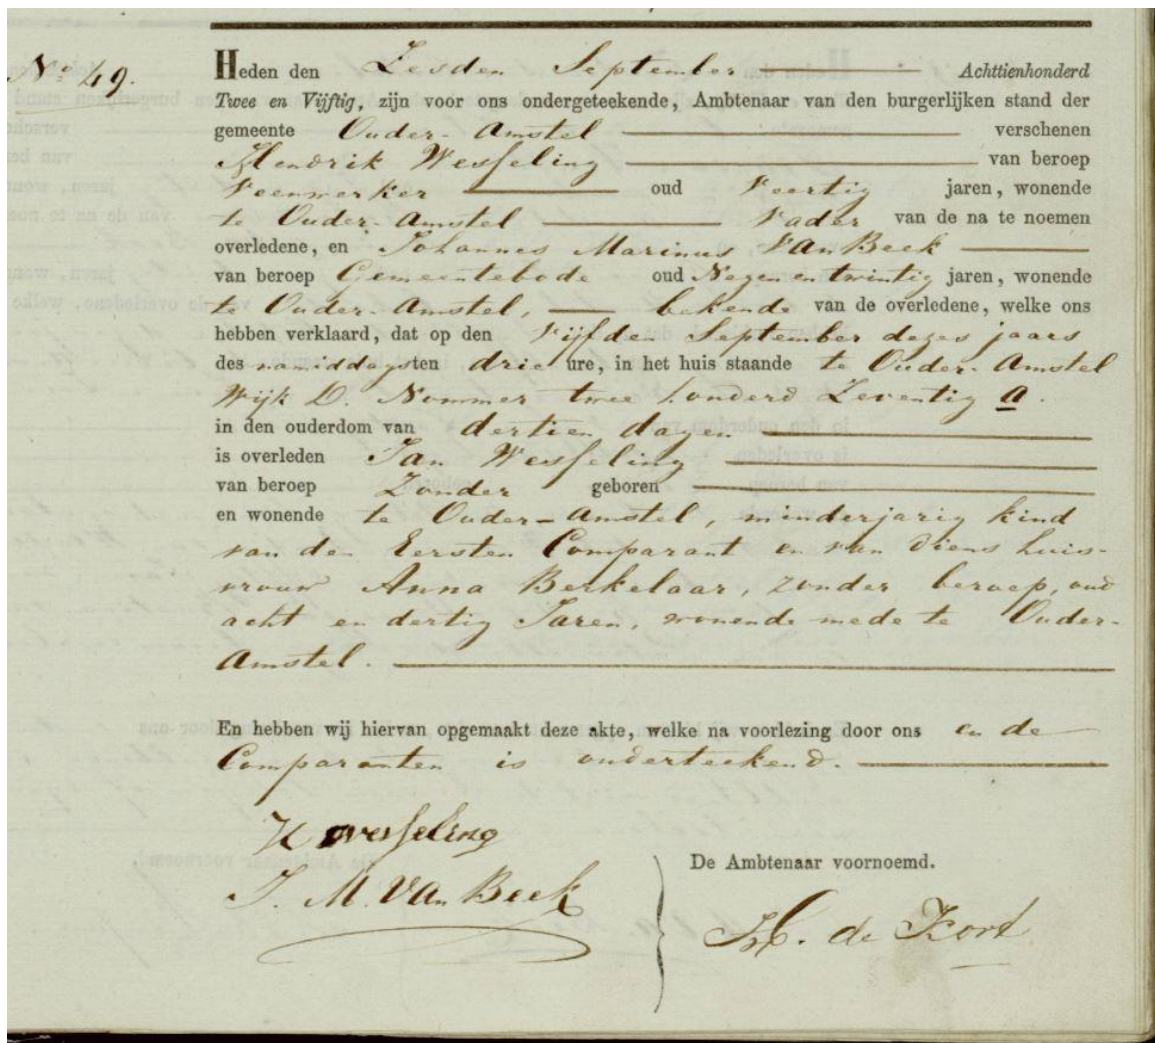 No 49.
Heden den Zesden September Achttienhonderd
Twee en Vijftig, zijn voor ons ondergeteekende, Ambtenaar van den burgerlijken stand der
gemeente Ouder-Amstel verschenen
Hendrik Wesseling van beroep
Veenwerker oud Veertig jaren, wonende
te Ouder-Amstel Vader van de na te noemen
overledene, en Johannes Marinus Van Beek
van beroep Gemeentebode oud Negen en twintig jaren, wonende
te Ouder-Amstel, bekende van de overledene, welke ons
hebben verklaard, dat op den Vijfden September dezes jaars
des namiddagsten drie ure, in het huis staande te Ouder-Amstel
Wijk D. Nommer twee honderd Zeventig a.
in den ouderdom van dertien dagen
is overleden Jan Wesseling
van beroep Zonder geboren
en wonende te Ouder-Amstel, minderjarig kind
van den Eersten Comparant en van diens huis-
vrouw Anna Berkelaar, zonder beroep, oud
acht en dertig Jaren, wonende mede te Ouder-
Amstel.
En hebben wij hiervan opgemaakt deze akte, welke na voorlezing door ons en de
Comparanten is onderteekend.
H Wesseling
J. M. Van Beek
De Ambtenaar voornoemd.
de Kort